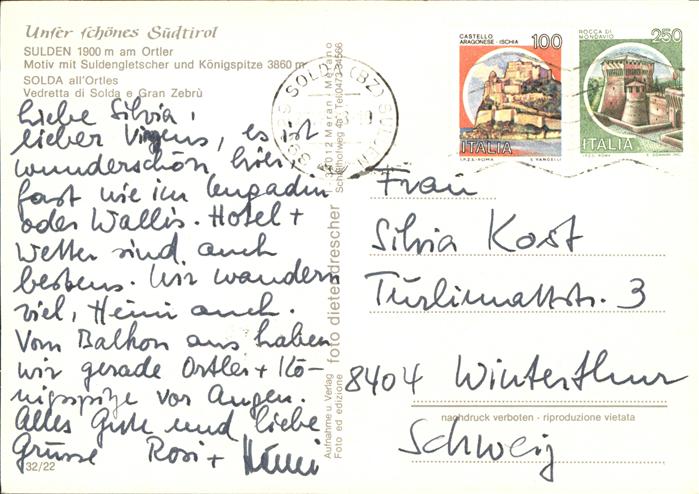 Unser schönes Südtirol
SULDEN 1900 m am Ortler
Motiv mit Suldengletscher und Königspitze 3860 m
SOLDA all'Ortles
Vedretta di Solda e Gran Zebrù
Liebe Silvia,
lieber Virgens, es ist
wunderschön hier
fast wie im Engadin
oder Wallis. Hotel +
Wetter sind auch
bestens. Wir wandern
viel, Heini auch.
Vom Balkon aus haben
wir gerade Ortler + Kö-
nigspitze vor Augen.
Alles Gute und liebe
Grüsse Rosi + Heini
32/22
Aufnahme u. Verlag
Foto ed edizione
foto dieter drescher
I-39012 Meran - Merano
SOLDA (BZ) SULDEN
CASTELLO
ARAGONESE - ISCHIA
100
ITALIA
I.P.Z.S. - ROMA E. VANGELLI
ROCCA DI
MONDAVIO
250
ITALIA
I.P.Z.S. ROMA
Frau
Silvia Kost
Türlimattstr. 3
8404 Winterthur
nachdruck verboten - riproduzione vietata
Schweiz